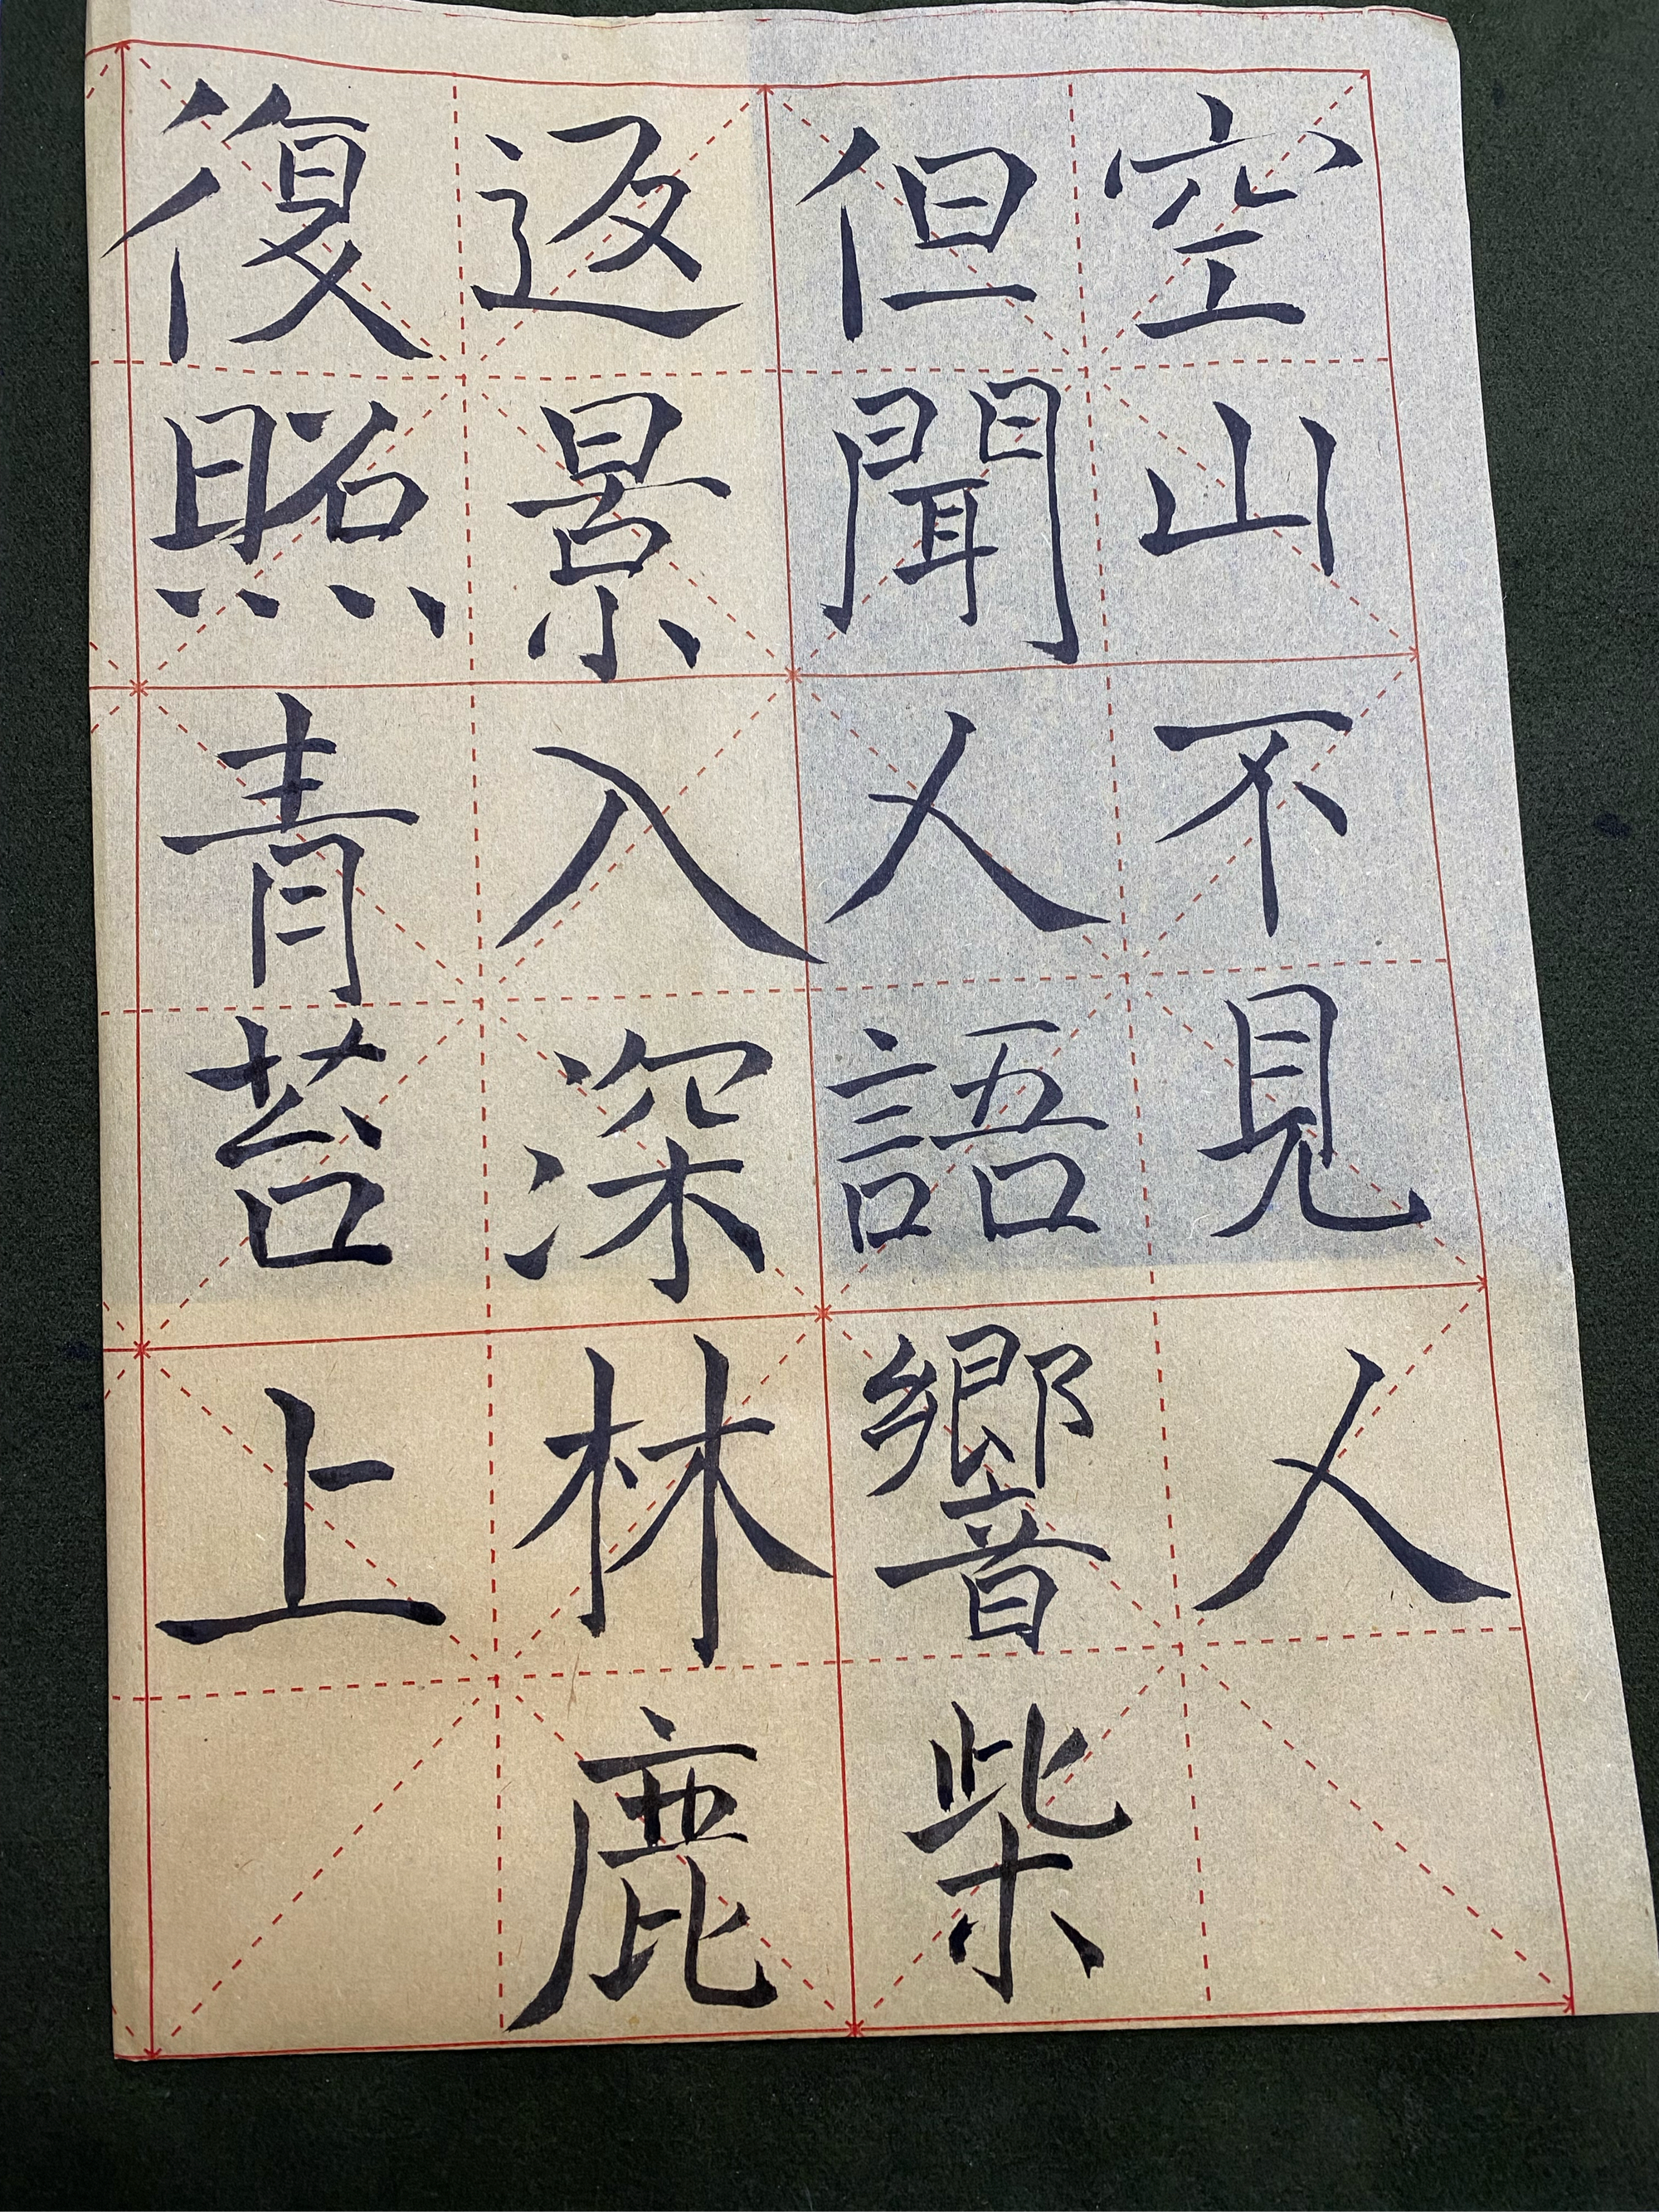 空山不見人
但聞人語響柴
返景入深林鹿
復照青苔上